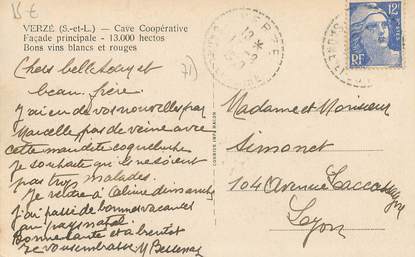 15 €
VERZÉ (S.-et-L.) — Cave Coopérative
Façade principale - 13.000 hectos
Bons vins blancs et rouges
Chers belle soeur et
beau frère.
J'ai eu de vos nouvelles par
Marcelle pas de veine avec
cette maudite coqueluche
Je souhaite qu'ils ne soient
pas trop malades.
Je rentre à dimanche
j'ai passé de bonnes vacances
au pays natal
Bonne santé et a bientot
je vous embrasse M
71)
VERZE
12
12F
POSTES
RF
Madame et Monsieur
Simonet
104 Avenue
Lyon